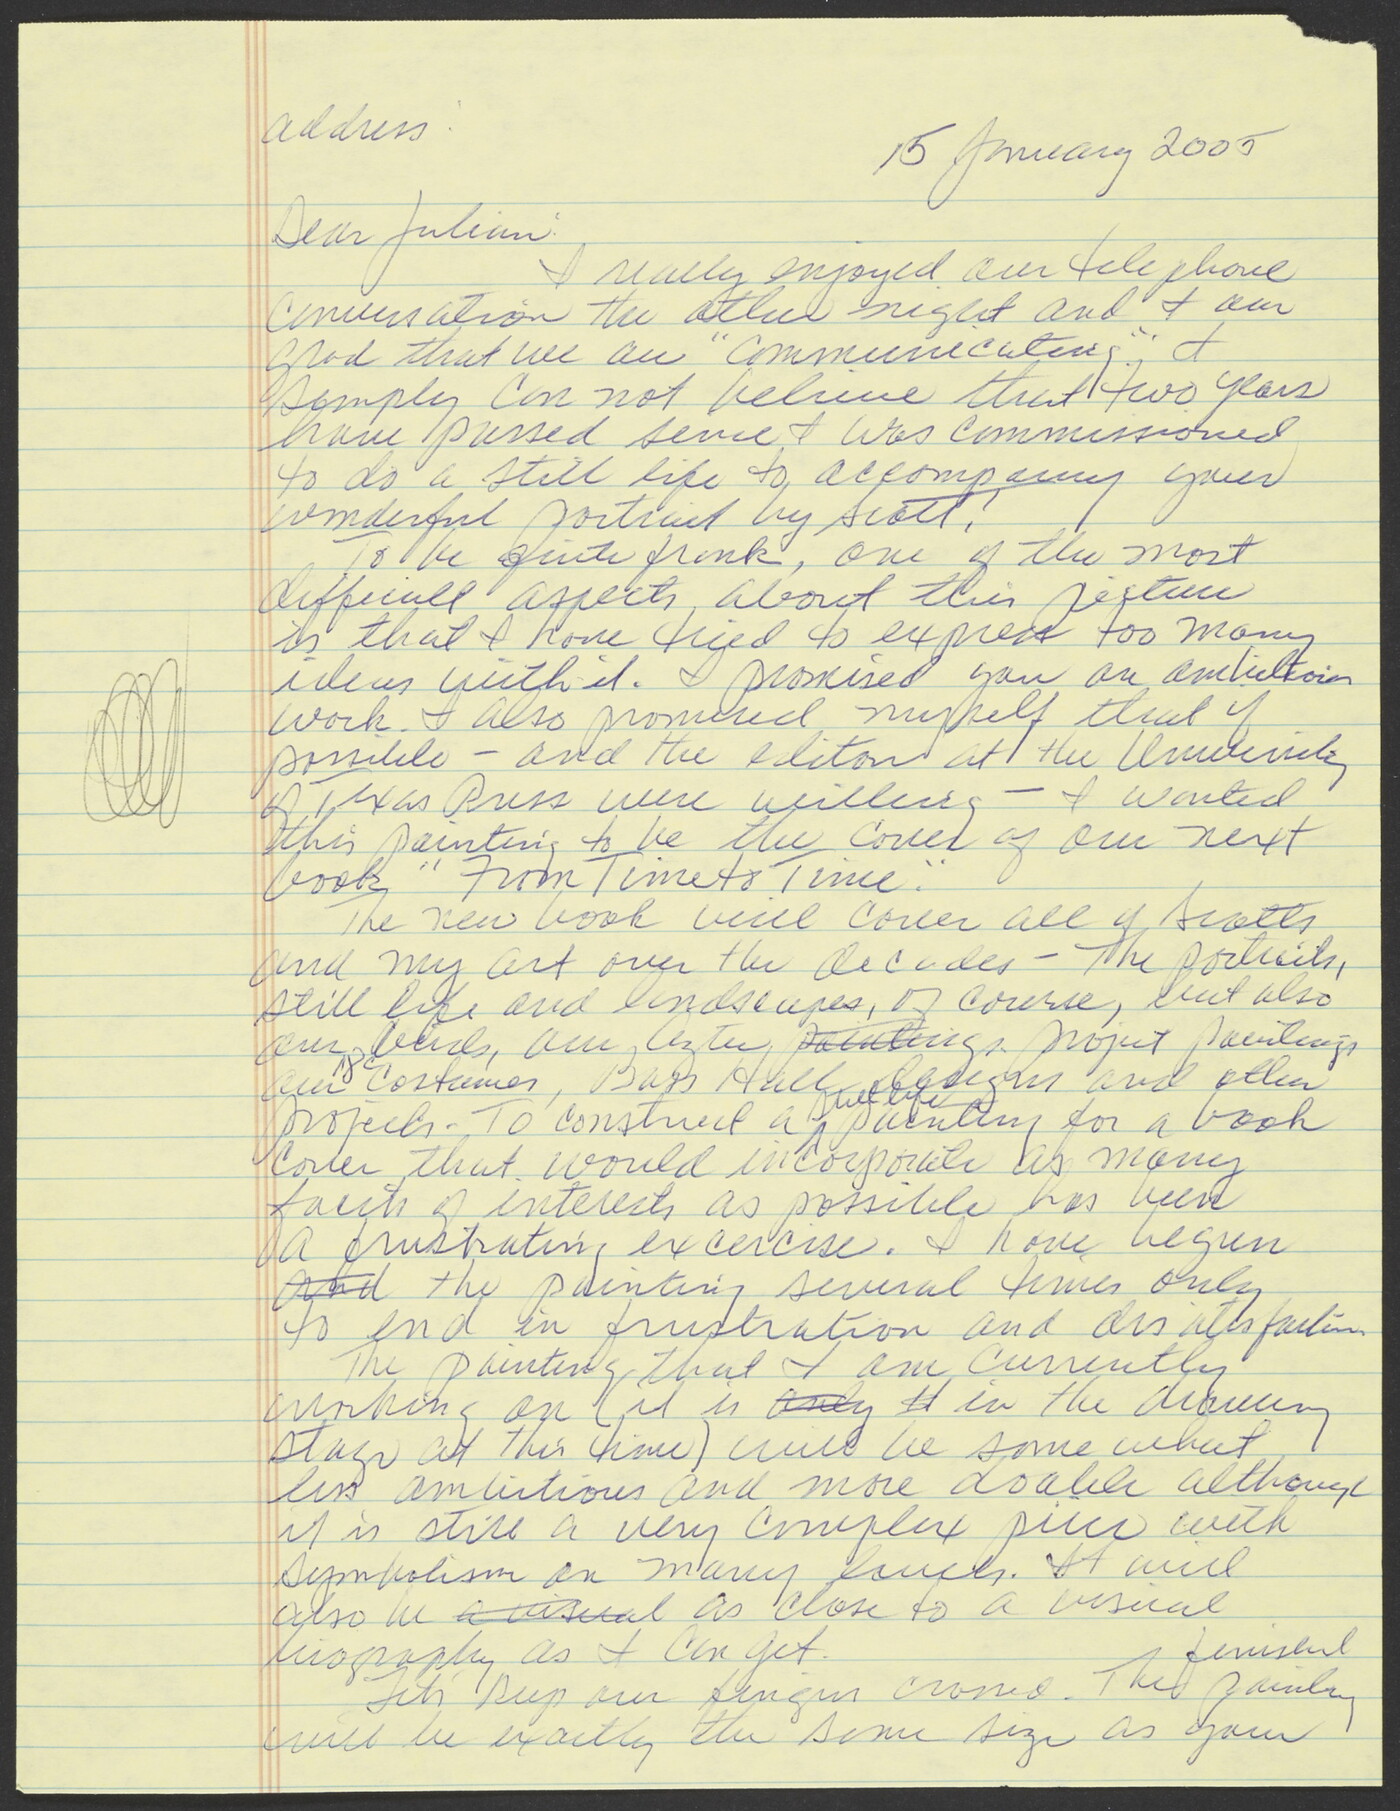 address:
15 January 2005
Dear Julian:
I really enjoyed our telephone
conversation the other night and I am
glad that we are "communicating", I
simply can not believe that two years
have passed since I was commissioned
to do a still life to accompany your
wonderful portrait by Scott!
To be quite frank, one of the most
difficult aspects about this picture
is that I have tried to express too many
ideas with it. I promised you an ambitious
work. I also promised myself that if
possible – and the editors at the University
of Texas Press were willing – I wanted
this painting to be the cover of our next
book "From Time to Time".
The new book will cover all of Scotts
and my art over the decades – The portraits,
still life and landscapes, of course, but also
our birds, our Aztec paintings project paintings
our costumes, Bass Hall designs and other
projects. To construct a still life painting for a book
cover that would incorporate as many
facets of interests as possible has been
a frustrating excercise. I have begun
and the painting several times only
to end in frustration and dissatisfaction.
The painting that I am currently
working on (it is only in the drawing
stage at this time) will be somewhat
less ambitious and more doable although
it is still a very complex piece with
symbolism on many levels. It will
also be a visual as close to a visual
biography as I can get.
Let's keep our fingers crossed. The finished painting
will be exactly the same size as your